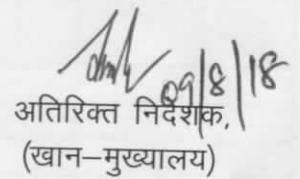 09/8/18
अतिरिक्त निदेशक,
(खान–मुख्यालय)